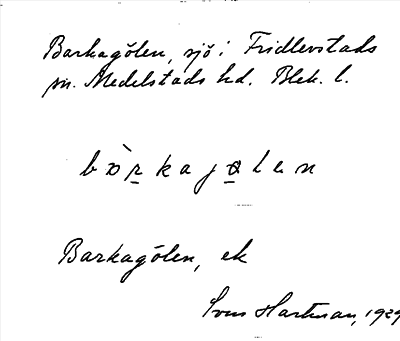 Barkagölen, sjö i Fridlevstads
sn. Medelstads hd. Blek. l.
bòrkagölen
Barkagölen, ek
Sven Hartman, 1929